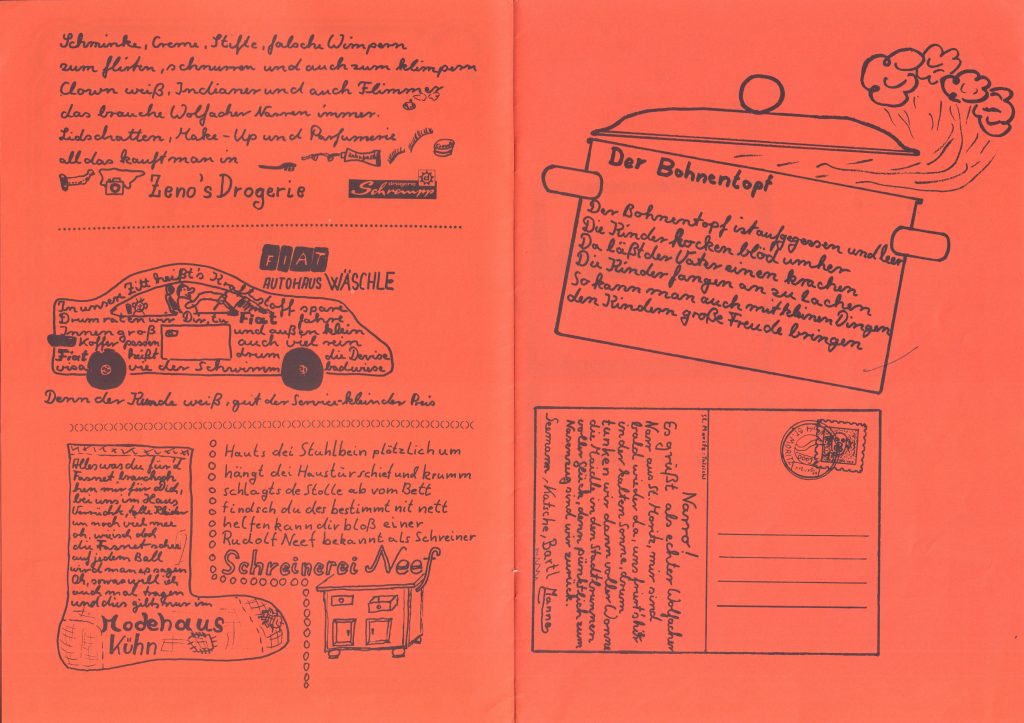 Schminke, Creme, Stifte, falsche Wimpern
zum flirten, schnurren und auch zum klimpern
Clown weiß, Indianer und auch Flimmer
das brauche Wolfacher Narren immer.
Lidschatten, Make-Up und Parfumerie
all das kauft man in
Zeno's Drogerie
drogerie
Schrempp
FIAT
AUTOHAUS WÄSCHLE
In unsrer Zitt heißt's Kraftstoff spare
Drum raten wir Dir, tu Fiat fahre
Innen groß und außen klein
Koffer passen auch viel rein
Fiat heißt drum die Devise
visa vie der Schwimm badwiese
Denn der Kunde weiß, gut der Service - klein der Preis
Alles was du für d
Fasnet brauchsch
hen mir für Dich,
bei uns im Haus
Verruckte, tolle Kleider
un noch viel mee
oh, waisch doch
die Fasnet schee
auf jedem Ball
wird man es sagen
Oh, sowas will ich
auch mal tragen
und dies gilt's nur im
Modehaus
Kühn
Hauts dei Stuhlbein plötzlich um
hängt dei Haustür schief und krumm
schlagts de Stolle ab vom Bett
findsch du des bestimmt nit nett
helfen kann dir bloß einer
Rudolf Neef bekannt als Schreiner
Schreinerei Neef
Der Bohnentopf
Der Bohnentopf ist aufgegessen und leer
Die Kinder hocken blöd umher
Da läßt der Vater einen krachen
Die Kinder fangen an zu lachen
So kann man auch mit kleinen Dingen
den Kindern große Freude bringen
Narro!
Es grüßt als echter Wolfacher
Narr aus St. Moritz, mir sind
bald wieder da, uns friert's hit
in der kalten Sonne, drum
tunken wir dann voller Wonne
die Mäuler in den Stadtbrunnen
voller Glück, denn pünktlich zum
Nasenzug sind wir zurück.
Seemann, Katsche, Bartl, Manne